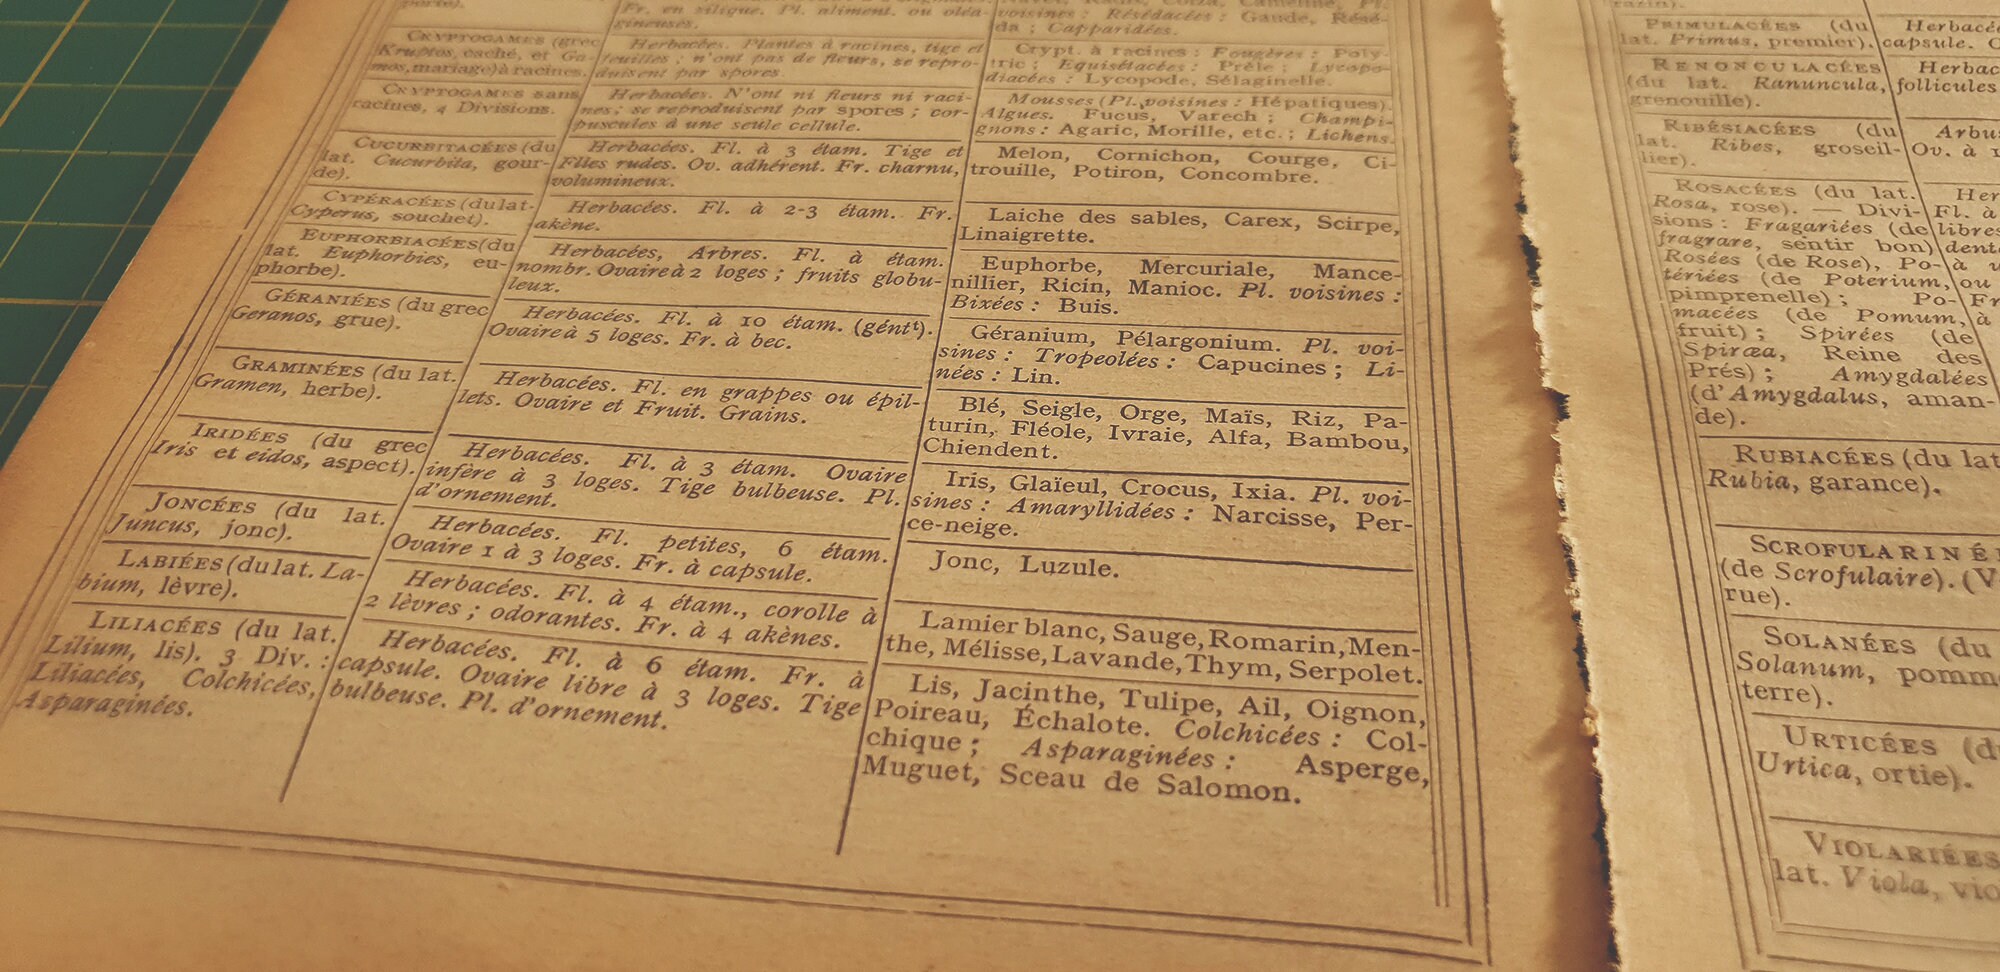 Fr. en silique. Pl. aliment. ou oléa-
gineuses.
voisines : Résédacées : Gaude, Résé-
da ; Capparidées.
CRYPTOGAMES (grec
Kruptos, caché, et Ga-
mos, mariage) à racines.
Herbacées. Plantes à racines, tige et
feuilles ; n'ont pas de fleurs, se repro-
duisent par spores.
Crypt. à racines : Fougères : Poly-
tric ; Equisétacées : Prêle ; Lycopo-
diacées : Lycopode, Sélaginelle.
CRYPTOGAMES sans
racines, 4 Divisions.
Herbacées. N'ont ni fleurs ni raci-
nes ; se reproduisent par spores ; cor-
puscules à une seule cellule.
Mousses (Pl. voisines : Hépatiques).
Algues. Fucus, Varech ; Champi-
gnons : Agaric, Morille, etc. ; Lichens.
CUCURBITACÉES (du
lat. Cucurbita, gour-
de).
Herbacées. Fl. à 3 étam. Tige et
Flles rudes. Ov. adhérent. Fr. charnu,
volumineux.
Melon, Cornichon, Courge, Ci-
trouille, Potiron, Concombre.
CYPÉRACÉES (du lat.
Cyperus, souchet).
Herbacées. Fl. à 2-3 étam. Fr.
akène.
Laiche des sables, Carex, Scirpe,
Linaigrette.
EUPHORBIACÉES (du
lat. Euphorbies, eu-
phorbe).
Herbacées, Arbres. Fl. à étam.
nombr. Ovaire à 2 loges ; fruits globu-
leux.
Euphorbe, Mercuriale, Mance-
nillier, Ricin, Manioc. Pl. voisines :
Bixées : Buis.
GÉRANIÉES (du grec
Geranos, grue).
Herbacées. Fl. à 10 étam. (génᵗ).
Ovaire à 5 loges. Fr. à bec.
Géranium, Pélargonium. Pl. voi-
sines : Tropeolées : Capucines ; Li-
nées : Lin.
GRAMINÉES (du lat.
Gramen, herbe).
Herbacées. Fl. en grappes ou épil-
lets. Ovaire et Fruit. Grains.
Blé, Seigle, Orge, Maïs, Riz, Pa-
turin, Fléole, Ivraie, Alfa, Bambou,
Chiendent.
IRIDÉES (du grec
Iris et eidos, aspect).
Herbacées. Fl. à 3 étam. Ovaire
infère à 3 loges. Tige bulbeuse. Pl.
d'ornement.
Iris, Glaïeul, Crocus, Ixia. Pl. voi-
sines : Amaryllidées : Narcisse, Per-
ce-neige.
JONCÉES (du lat.
Juncus, jonc).
Herbacées. Fl. petites, 6 étam.
Ovaire 1 à 3 loges. Fr. à capsule.
Jonc, Luzule.
LABIÉES (du lat. La-
bium, lèvre).
Herbacées. Fl. à 4 étam., corolle à
2 lèvres ; odorantes. Fr. à 4 akènes.
Lamier blanc, Sauge, Romarin, Men-
the, Mélisse, Lavande, Thym, Serpolet.
LILIACÉES (du lat.
Lilium, lis). 3 Div. :
Liliacées, Colchicées,
Asparaginées.
Herbacées. Fl. à 6 étam. Fr. à
capsule. Ovaire libre à 3 loges. Tige
bulbeuse. Pl. d'ornement.
Lis, Jacinthe, Tulipe, Ail, Oignon,
Poireau, Échalote. Colchicées : Col-
chique ; Asparaginées : Asperge,
Muguet, Sceau de Salomon.
PRIMULACÉES (du
lat. Primus, premier).
capsule.
RENONCULACÉES
(du lat. Ranuncula,
grenouille).
follicules
RIBÉSIACÉES (du
lat. Ribes, groseil-
lier).
Ov. à
ROSACÉES (du lat.
Rosa, rose). — Divi-
sions : Fragariées (de
fragrare, sentir bon)
Rosées (de Rose), Po-
tériées (de Poterium,
pimprenelle) ; Po-
macées (de Pomum,
fruit) ; Spirées (de
Spiræa, Reine des
Prés) ; Amygdalées
(d'Amygdalus, aman-
de).
Fl. à
libres
RUBIACÉES (du lat
Rubia, garance).
SCROFULARINÉ
(de Scrofulaire). (V
rue).
SOLANÉES (du
Solanum, pomm
terre).
URTICÉES (d
Urtica, ortie).
VIOLARIÉES
lat. Viola, vio